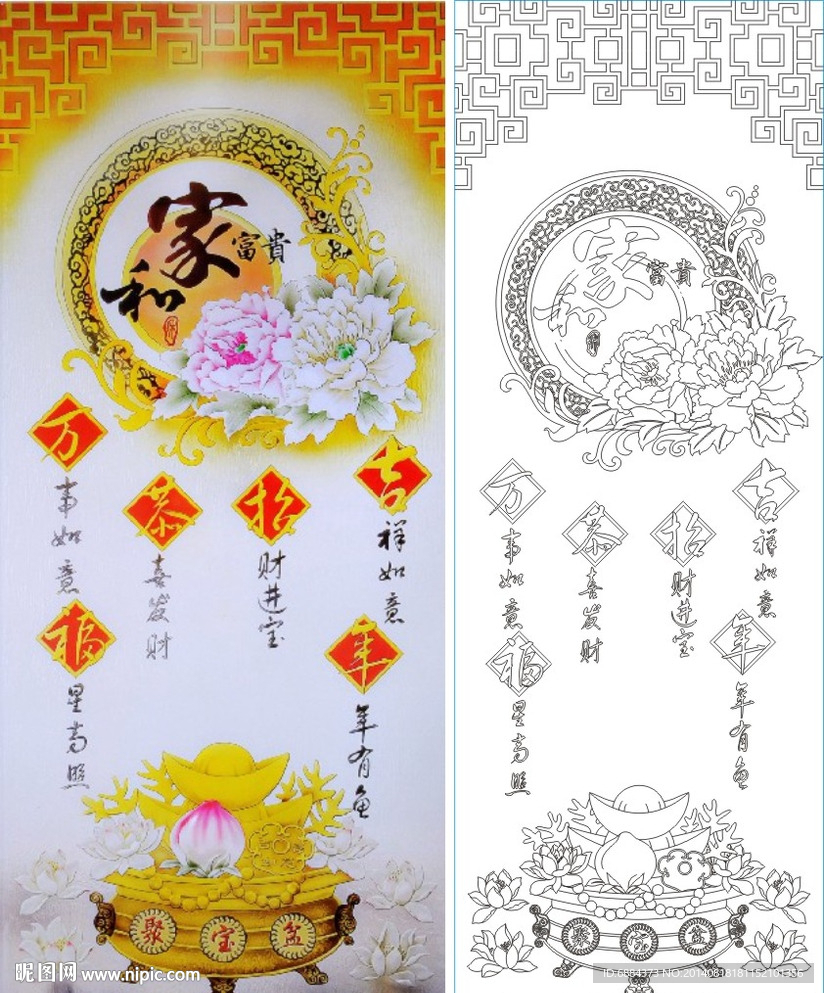 家和
富贵
万事如意
恭喜发财
招财进宝
吉祥如意
福星高照
年年有鱼
聚宝盆
昵图网 www.nipic.com
家和
富贵
万事如意
恭喜发财
招财进宝
吉祥如意
福星高照
年年有鱼
聚宝盆
ID:6884373 NO:20140818181152101356